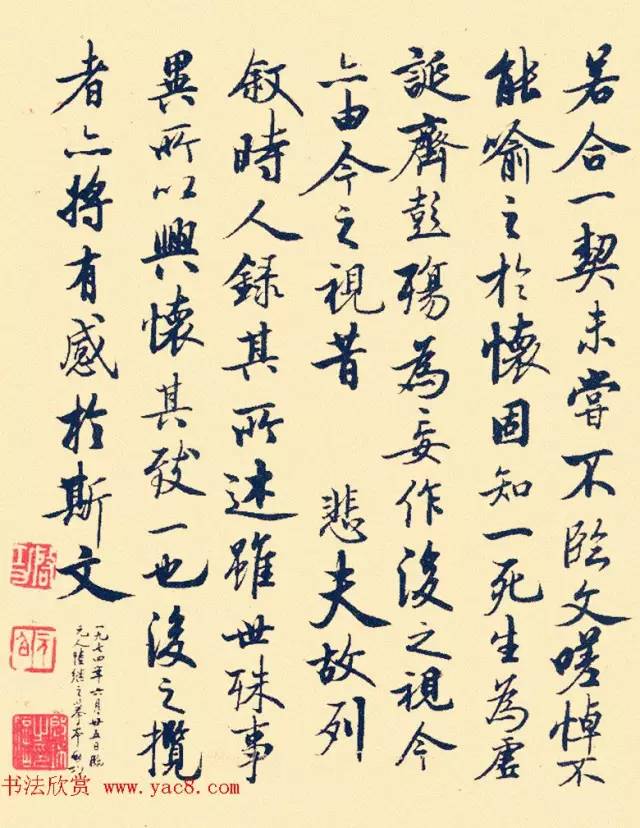 若合一契未嘗不臨文嗟悼不
能喻之於懷固知一死生為虛
誕齊彭殤為妄作後之視今
亦由今之視昔 悲夫故列
敘時人錄其所述雖世殊事
異所以興懷其致一也後之攬
者亦將有感於斯文
一九七四年六月廿五日臨
元人陸繼之摹本
书法欣赏 www.yac8.com